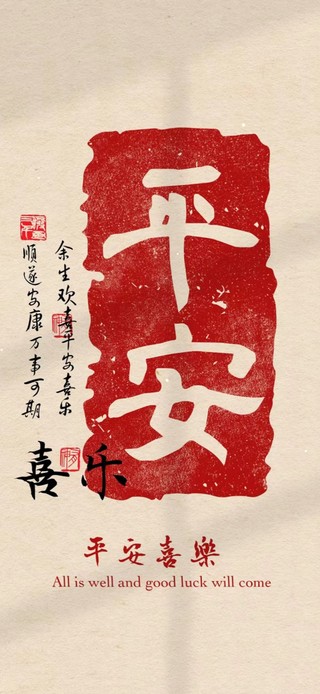 平安
余生欢喜平安喜乐
順遂安康万事可期
喜乐
平安喜樂
All is well and good luck will come